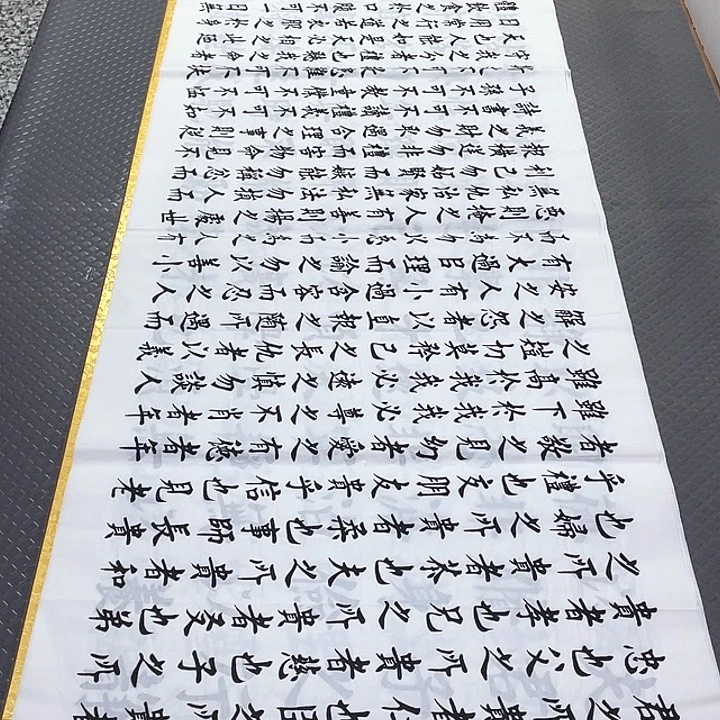 君之所貴者仁也臣之所貴者
忠也父之所貴者慈也子之所
貴者孝也兄之所貴者友也弟
之所貴者恭也夫之所貴者和
也婦之所貴者柔也事師長貴
乎禮也交朋友貴乎信也見老
者敬之見幼者愛之有德者年
雖下於我我必尊之不肖者年
雖高於我我必遠之慎勿談人
之短切莫矜己之長仇者以義
解之怨者以直報之隨所遇而
安之人有小過含容而忍之人
有大過以理而諭之勿以善小
而不為勿以惡小而為之人有
惡則掩之人有善則揚之處世
無私仇治家無私法勿損人而
利己勿妒賢而嫉能勿稱忿而
報橫逆勿非禮而害物命見不
義之財勿取遇合理之事則從
詩書不可不讀禮義不可不知
子孫不可不教童僕不可不恤
斯文不可不敬患難不可不扶
守我之分者禮也聽我之命者
天也人能如是天必相之此乃
日用常行之道若衣服之於身
體飲食之於口腹不可一日無